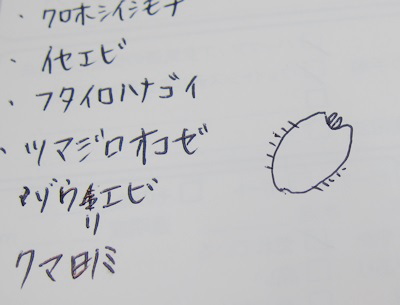 ・クロホシイシモチ
・イセエビ
・フタイロハナゴイ
・ツマジロオコゼ
・ゾウリエビ
クマノミ